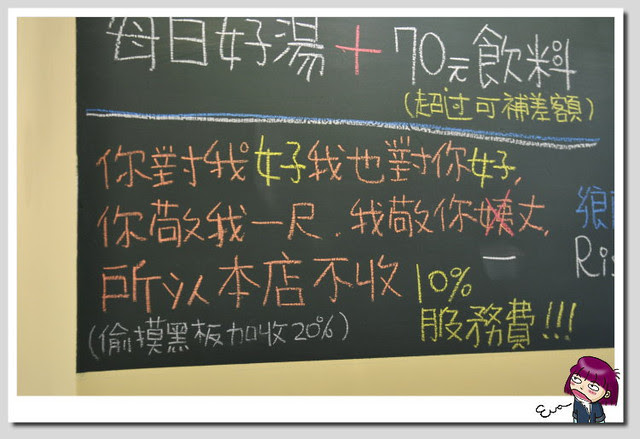 每日好湯+70元飲料
(超过可補差額)
你對我好我也對你好,
你敬我一尺.我敬你姨丈,
一
所以本店不收10%
服務費!!!
(偷摸黑板加收20%)
Ris
Eva